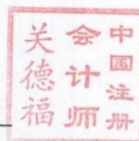 中国注册
会计师
关德福